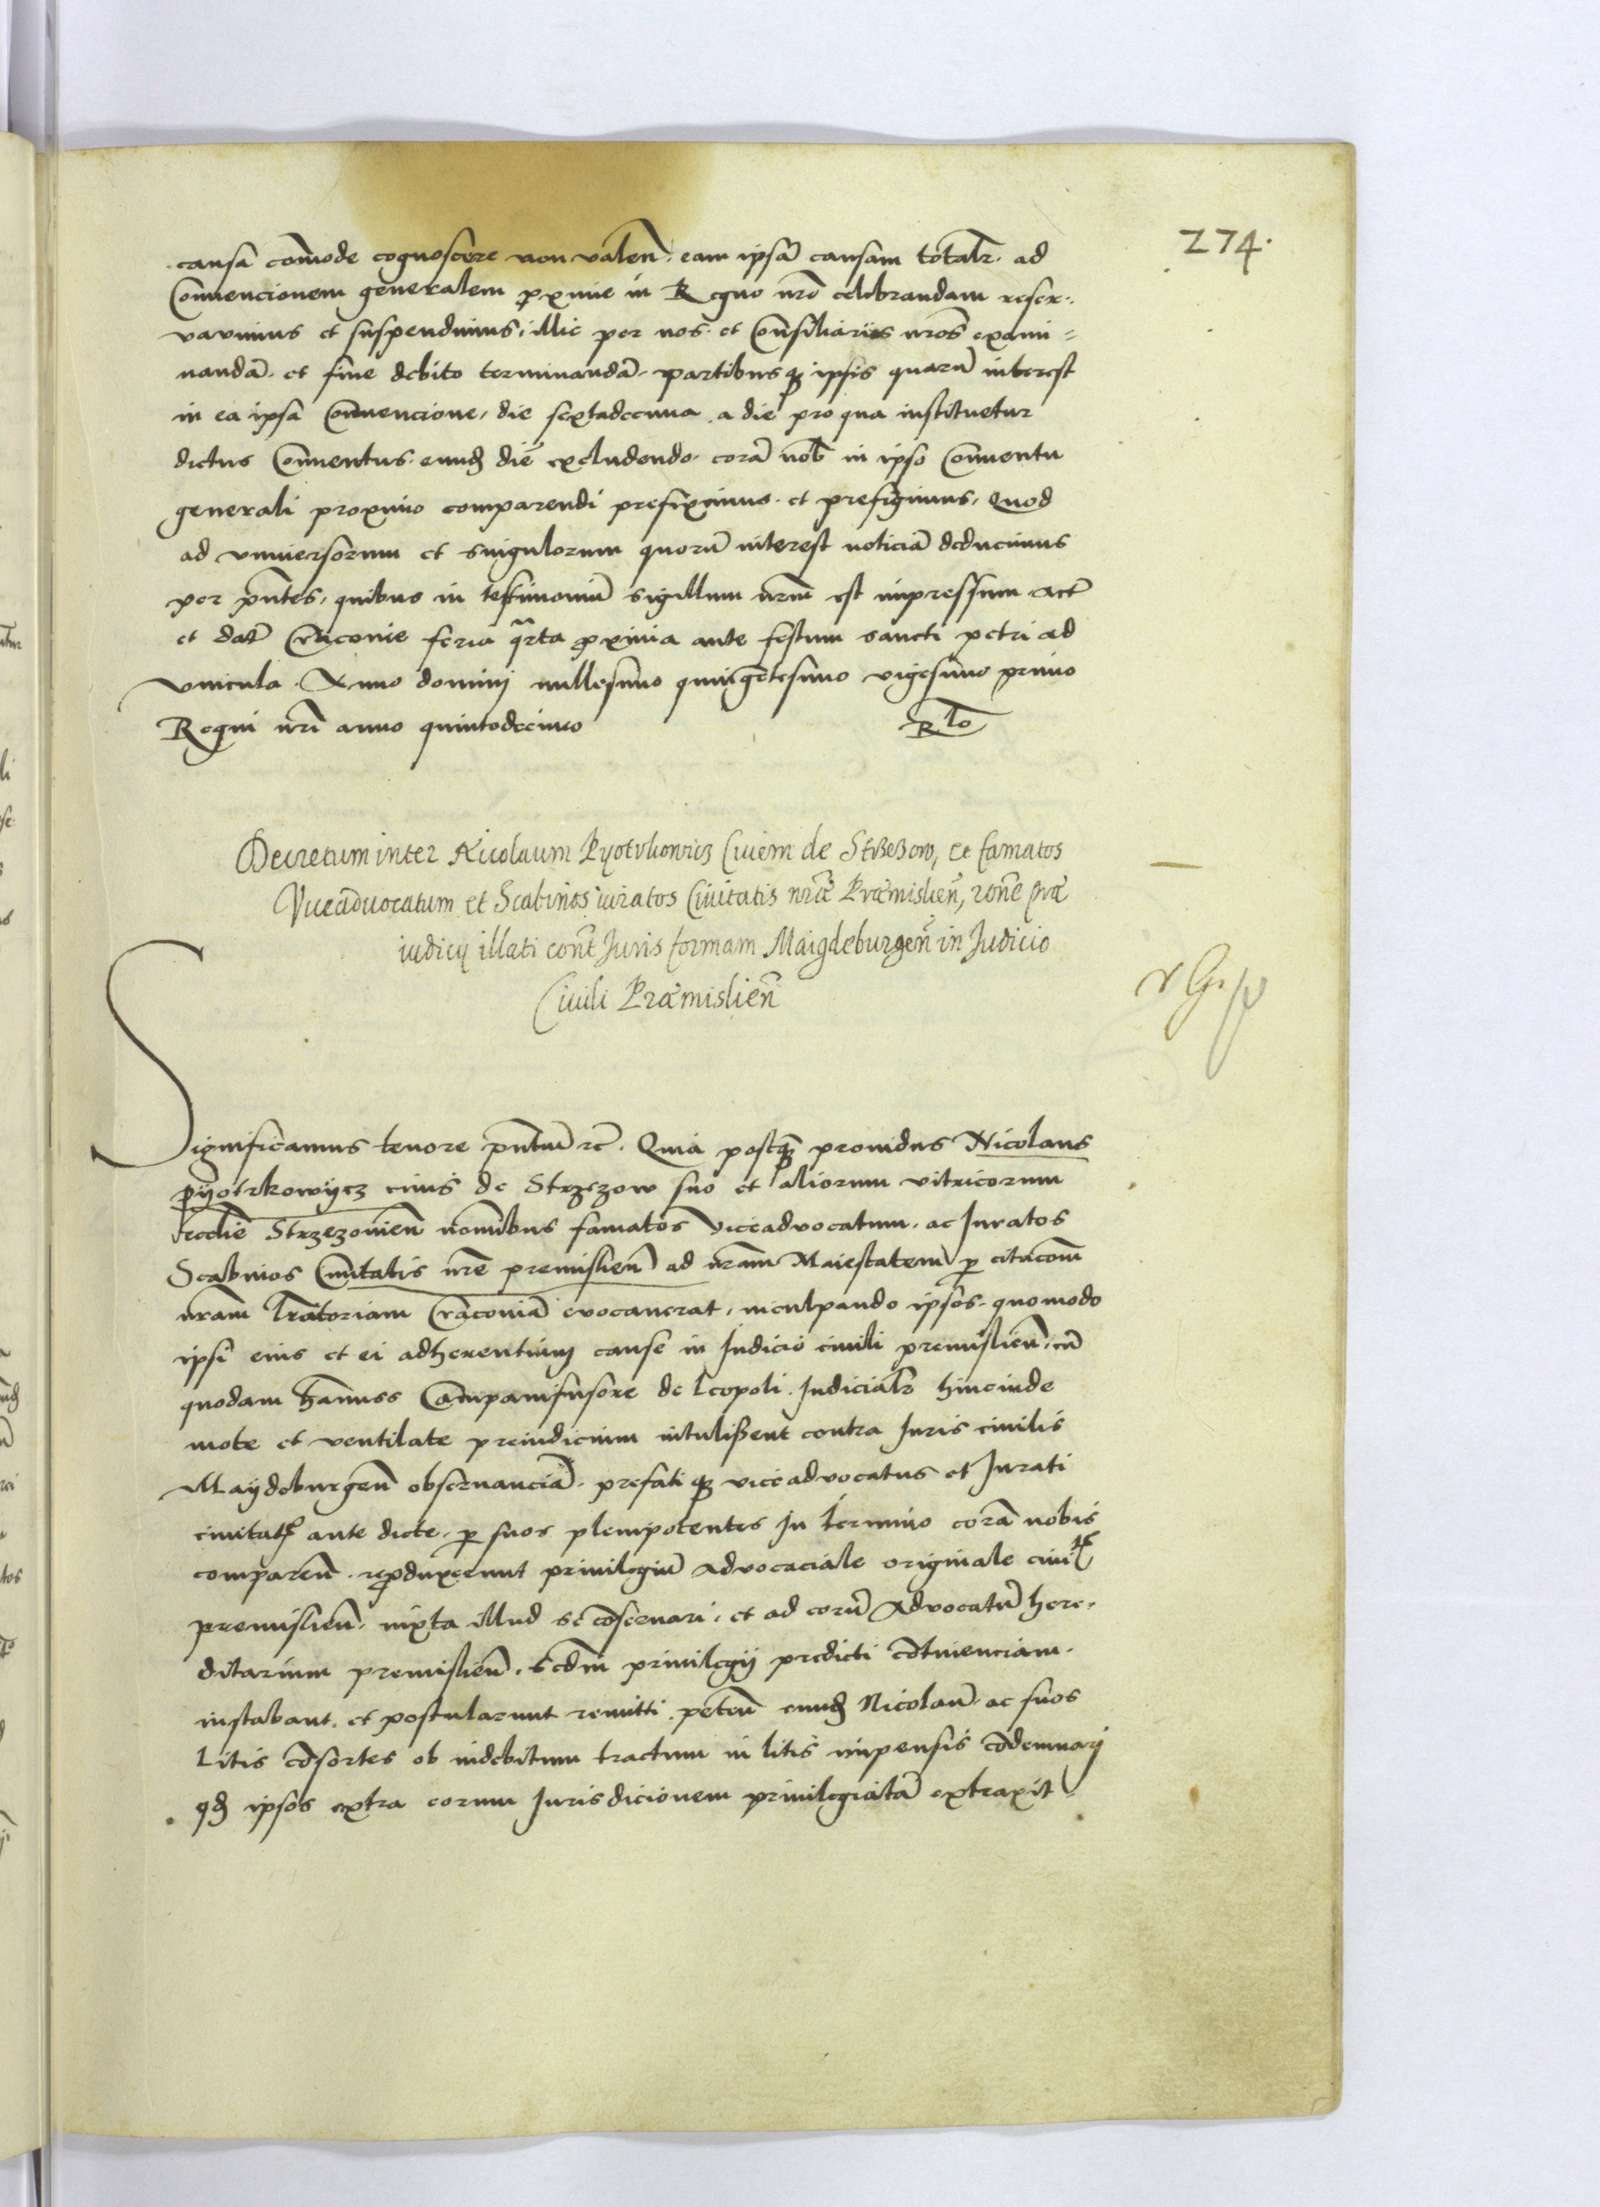 274.
causã cõmode cognoscere non valeñ. eam ipsã causam totalr̃. ad
Convencionem generalem proxime in Regno nr̃o celebrandam reser-
vavimus et suspendimus, illic per nos et Consiliarios nr̃os exami=
nandã. et fine debito terminandã. partibusqʒ ipsis quarũ interest
in ea ipsa Convencione, die sextadecima a die pro qua instituetur
dictus Conventus. eundẽ diẽ excludendo. corã nob̃ in ipso Conventu
generali proximo comparendi prefiximus et prefigimus, Quod
ad vniversorum et singulorum quorũ interest noticiã deducimus
per pñtes, quibus in testimoniũ sigillum nr̃m est impressum. Act̃
et dat̃ Cracouie feria q̃rta proxima ante festum sancti petri ad
vincula. Anno dominj millesimo quingẽtesimo vigesimo primo
Regni nr̃i anno quintodecimo Rlõ
Decretum inter Nicolaum Pyotrkouicz Ciuem de Strzezow, et famatos
Viceadvocatum et Scabinos iuratos Ciuitatis nr̃æ Præmislieñ, rõne præ
iudicij illati cont̃ Juris formam Maigdeburgeñ in Judicio
Ciuili Præmislieñ
Significamus tenore pñtiũ rc̃. Quia postqʒ prouidus Nicolaus
pyotrkowycz ciuis de Strzezow suo et aliorum vitricorum
Ecclie Strzezouieñ nomibus famatos viceadvocatum. ac Juratos
Scabinos Ciuitatis nr̃e premislieñ ad nr̃am Maiestatem p citacoem̃
nr̃am lr̃atoriam Cracouiã evocauerat, inculpando ipsos. quomodo
ipsi eius et ei adherentiuɱ cause in Judicio ciuili premislieñ, cũ
quodam hannuss Campanifusore de leopoli. Judicialr̃ hincinde
mote et ventilate preiudicium intulißent contra Juris ciuilis
Maydeburgeñ obseruanciã. prefatiqʒ viceadvocatus et Jurati
ciuitatʒ ante dicte, p suos plenipotentes In termino corã nobis
compareñ. reproduxerunt priuilegiũ advocaciale originale ciuitʒ
premislieñ, iuxta illud se cõseruari, et ad eorũ Advocatũ here-
ditarium premislieñ. Secdm̃ priuilegij predicti cõtinenciam.
instabant. et postularunt remitti. peteñ eundẽ Nicolaũ ac suos
Litis cõsortes ob indebitum tractum in litis impensis cõdemnarj
qđ ipsos extra eorum Jurisdicionem priuilegiatã extraxit